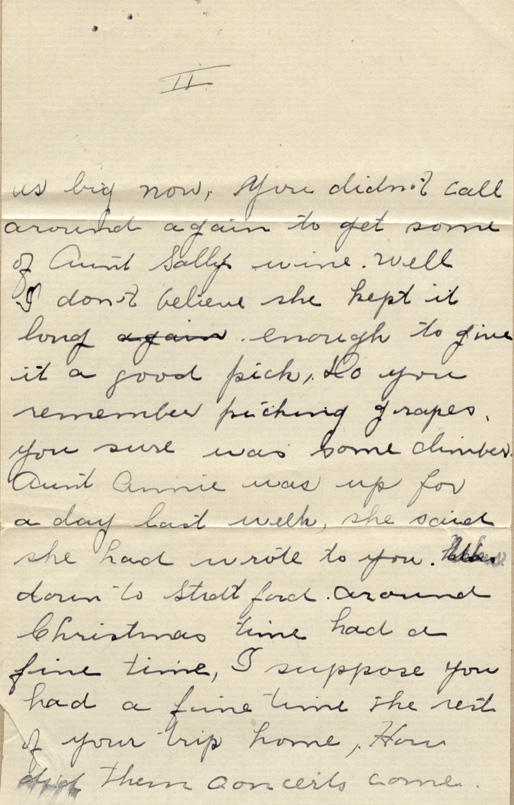 II
us big now, You didn't call
around again to get some
of Aunt Sally wine. Well
I don't believe she kept it
long again. enough to give
it a good pick, Do you
remember picking grapes.
you sure was some climber.
Aunt Annie was up for
a day last week, she said
she had wrote to you.
down to Stratford. around
Christmas time had a
fine time, I suppose you
had a fine time the rest
of your trip home, How
did them concerts come.